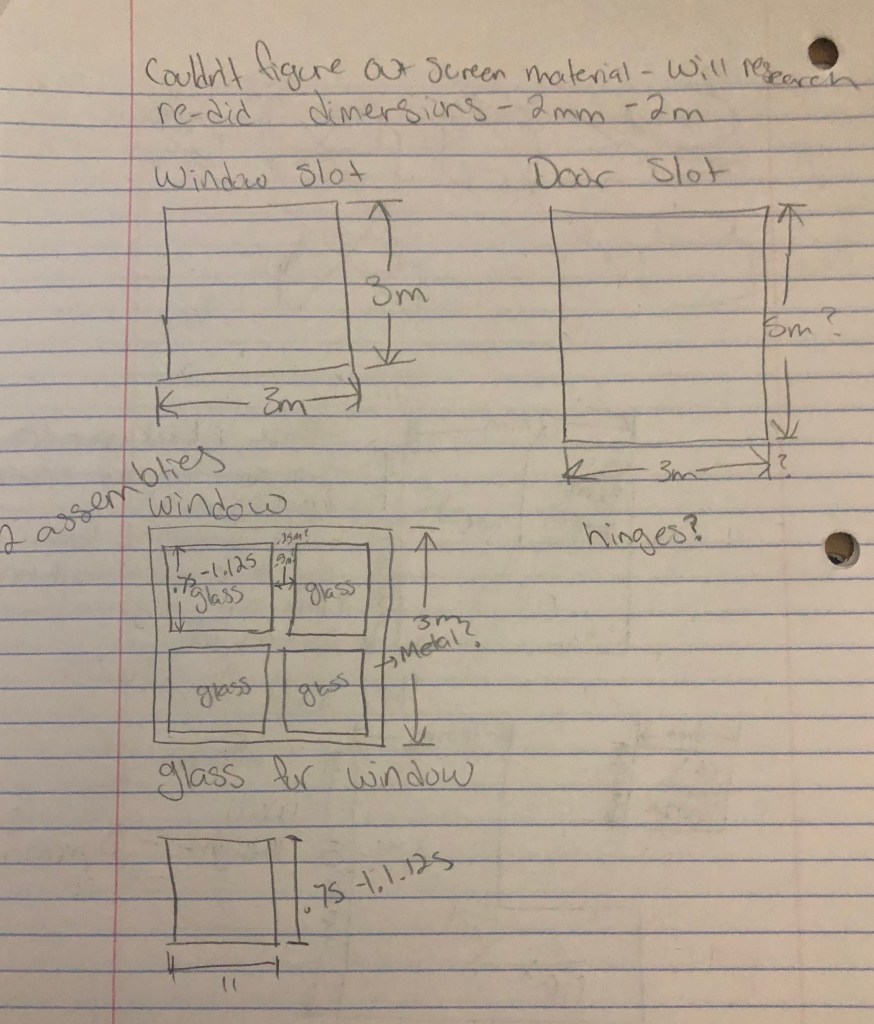 Couldn't figure out screen material - Will research
re-did dimensions - 2mm - 2m
Window Slot
Door Slot
3m
5m?
3m
3m ?
2 assemblies
window
hinges?
.75-1.125
glass
glass
3m?
→Metal?
glass
glass
glass for window
.75-1,1.125
"